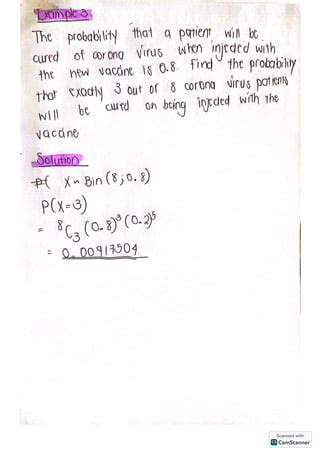 Example 3
The probability that a patient will be
cured of corona virus when injected with
the new vaccine is 0.8. Find the probability
that exactly 3 out of 8 corona virus patients
will be cured on being injected with the
vaccine
Solution
X ~ Bin (8, 0.8)
P(X=3)
= ⁸C₃ (0.8)³ (0.2)⁵
= 0.00917504
Scanned with
CS CamScanner